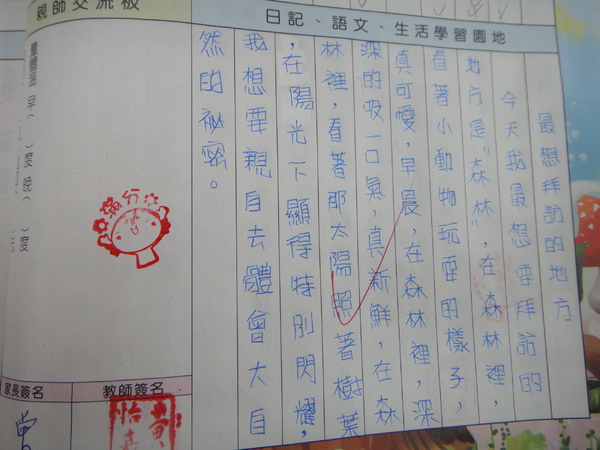 親師交流板
日記、語文、生活學習園地
最想拜訪的地方
今天我最想要拜訪的
地方是“森林”,在森林裡,
看著小動物玩耍的樣子,
真可愛,早晨,在森林裡,深
深的吸一口氣,真新鮮,在森
林裡,看著那太陽照著樹葉
,在陽光下顯得特別閃耀,
我想要親自去體會大自
然的祕密。
量體溫 早( )度 晚( )度
滿分
家長簽名
教師簽名
黃怡嘉